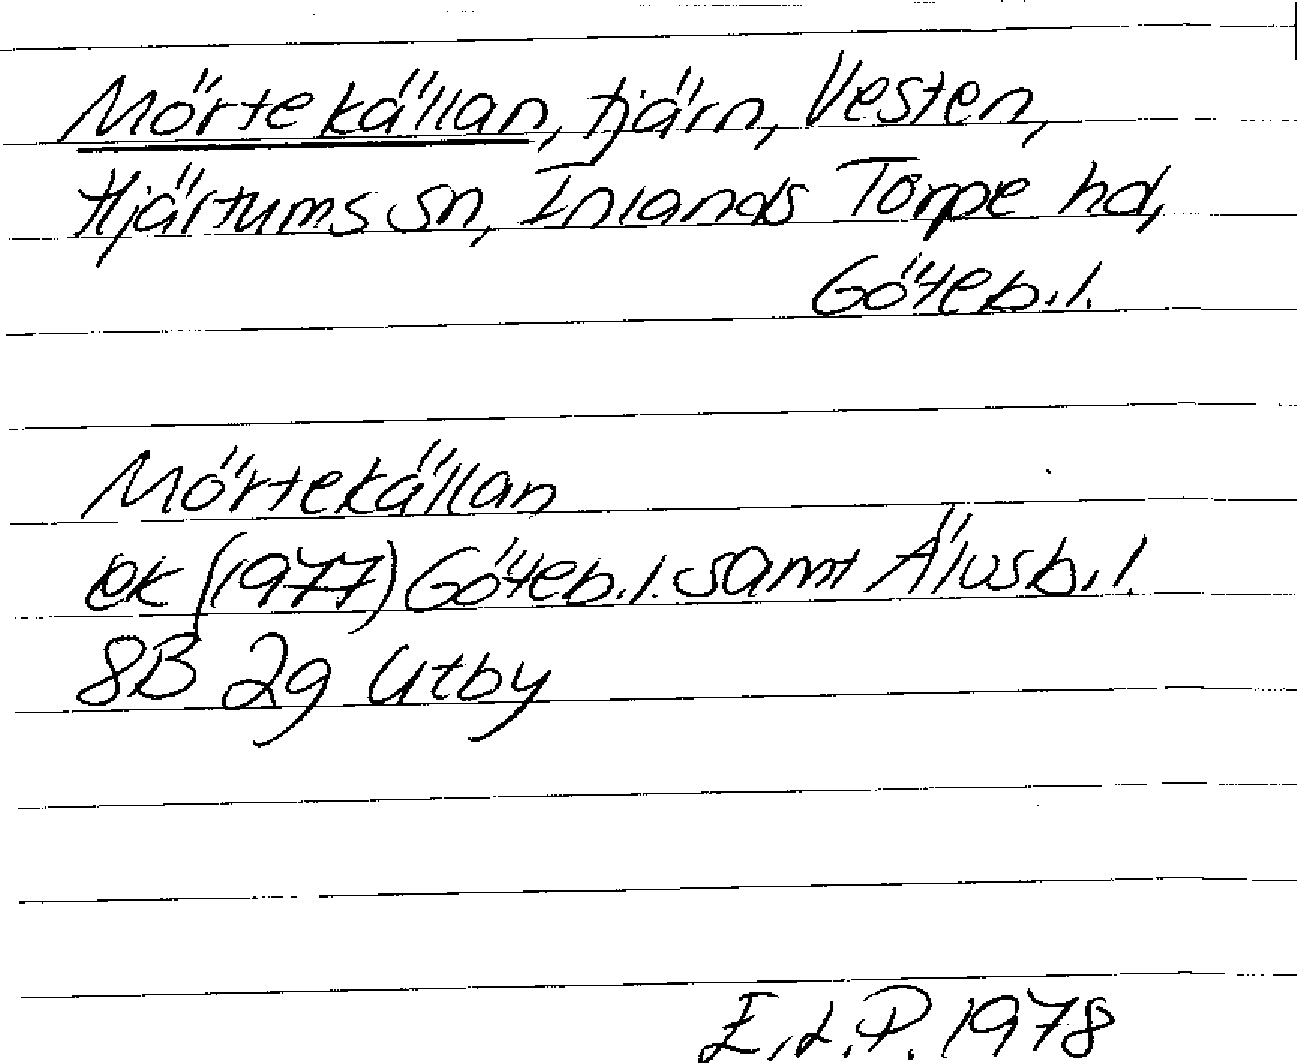 Mörtekällan, tjärn, Vesten,
Hjärtums sn, Inlands Torpe hd,
Göteb.l.
Mörtekällan
ek (1977) Göteb.l. samt Älvsb.l.
8B 2g Utby
E.L.P. 1978